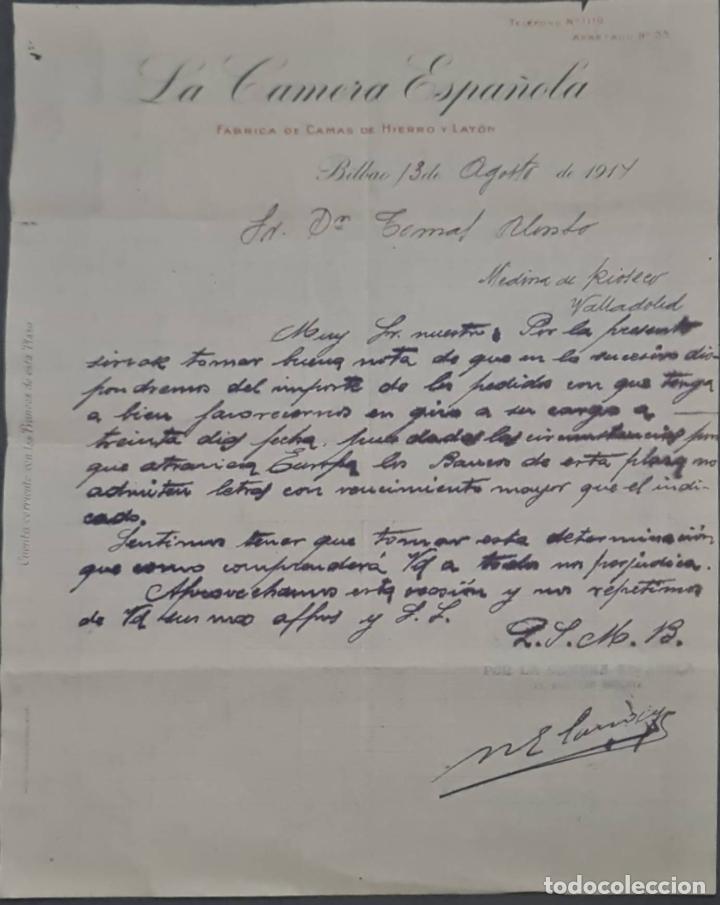 TELÉFONO Nº 1110
APARTADO Nº 33
La Camera Española
FABRICA DE CAMAS DE HIERRO Y LATÓN
Bilbao 13 de Agosto de 1914
Sr. Dn Tomas Alonso
Medina de Rioseco
Valladolid
Muy Sr. nuestro: Por la presente
sirvase tomar buena nota de que en lo sucesivo dis-
pondremos del importe de los pedidos con que tenga
a bien favorecernos en giro a su cargo a
treinta dias fecha, pues dadas las circunstancias por
que atraviesa Europa los Bancos de esta plaza no
admiten letras con vencimiento mayor que el indi-
cado.
Sentimos tener que tomar esta determinación
que como comprenderá Vd a todos nos perjudica.
Aprovechamos esta ocasión y nos repetimos
de Vd sus mas affmos y S. S.
Q. S. M. B.
POR LA CAMERA ESPAÑOLA
Cuenta corriente con los Bancos de esta Plaza
todocoleccion.net